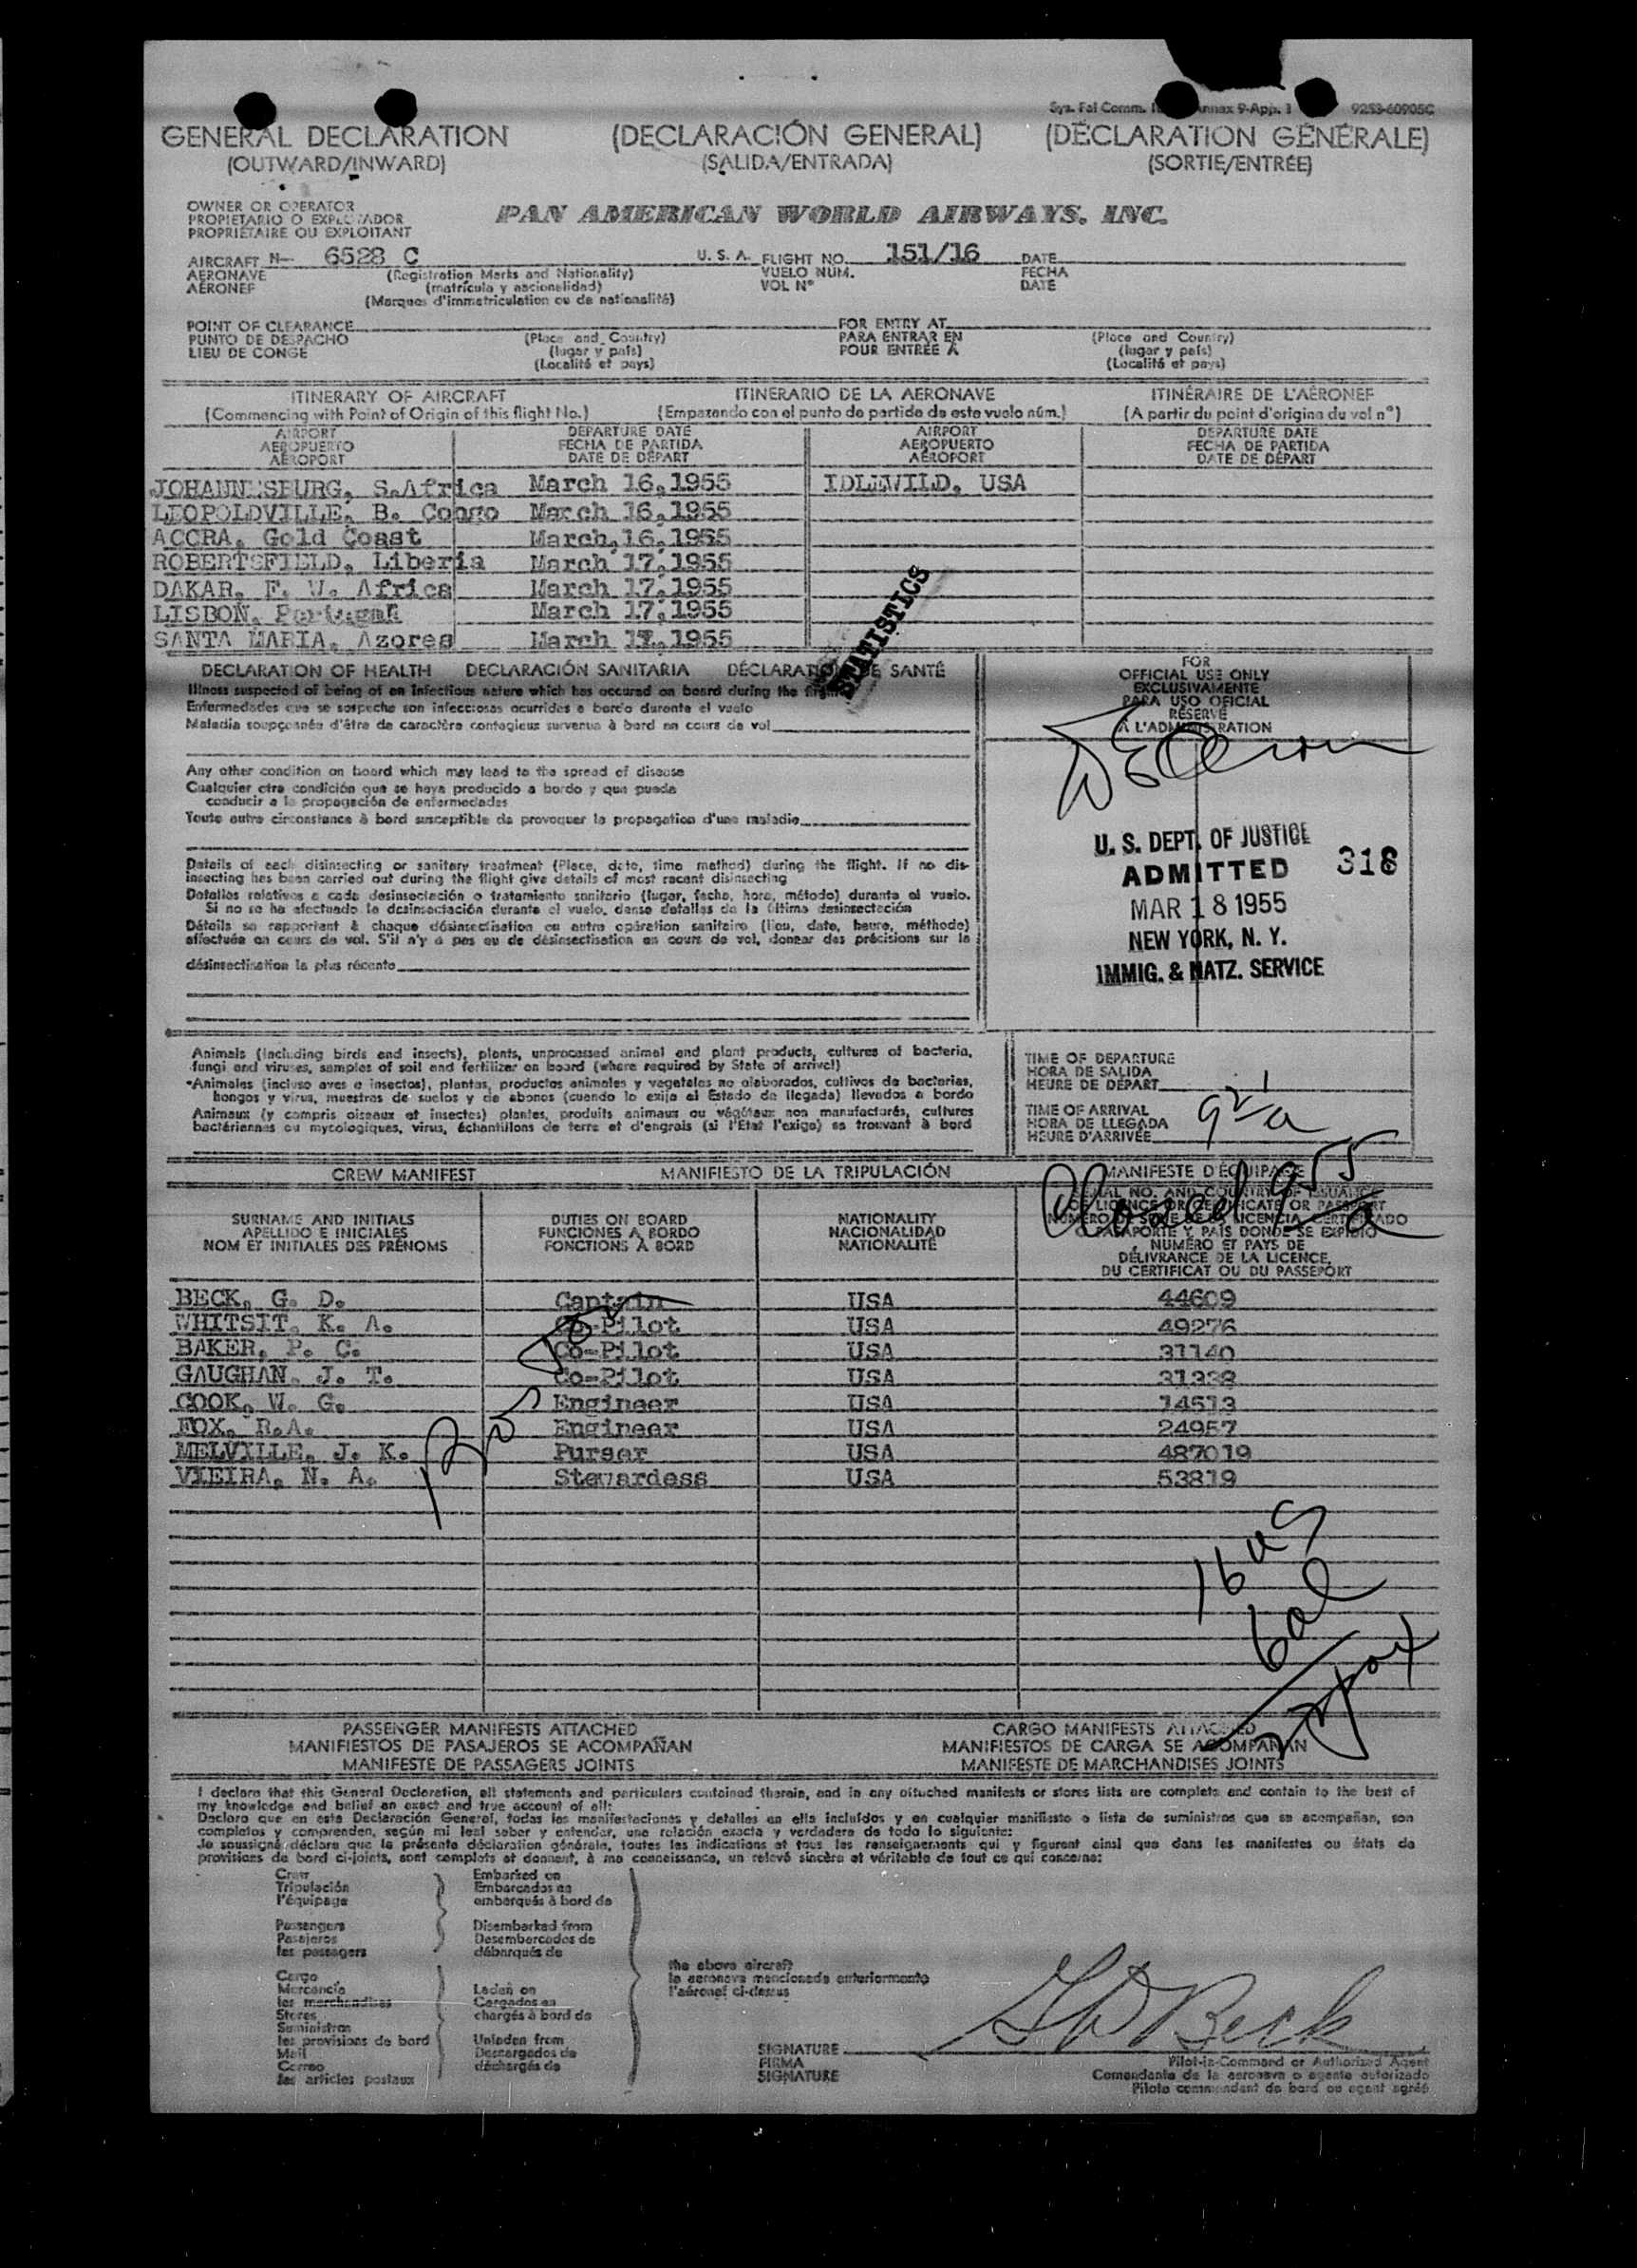 Sys. Fal Comm. Annex 9-App. 1 9253-60905C
GENERAL DECLARATION (DECLARACIÓN GENERAL) (DÉCLARATION GÉNÉRALE)
(OUTWARD/INWARD) (SALIDA/ENTRADA) (SORTIE/ENTRÉE)
OWNER OR OPERATOR
PROPIETARIO O EXPLOTADOR
PROPRIÉTAIRE OU EXPLOITANT
PAN AMERICAN WORLD AIRWAYS, INC.
AIRCRAFT N- 6528 C U. S. A. FLIGHT NO. 151/16 DATE
AERONAVE (Registration Marks and Nationality) VUELO NÚM. FECHA
AÉRONEF (matrícula y nacionalidad) VOL Nº DATE
(Marques d'immatriculation ou de nationalité)
POINT OF CLEARANCE FOR ENTRY AT
PUNTO DE DESPACHO (Place and Country) PARA ENTRAR EN (Place and Country)
LIEU DE CONGÉ (lugar y país) POUR ENTRÉE À (lugar y país)
(Localité et pays) (Localité et pays)
ITINERARY OF AIRCRAFT ITINERARIO DE LA AERONAVE ITINÉRAIRE DE L'AÉRONEF
(Commencing with Point of Origin of this flight No.) (Empezando con el punto de partida de este vuelo núm.) (A partir du point d'origine du vol nº)
AIRPORT DEPARTURE DATE AIRPORT DEPARTURE DATE
AEROPUERTO FECHA DE PARTIDA AEROPUERTO FECHA DE PARTIDA
AÉROPORT DATE DE DÉPART AÉROPORT DATE DE DÉPART
JOHANNESBURG, S.Africa March 16,1955 IDLEWILD, USA
LEOPOLDVILLE, B. Congo March 16,1955
ACCRA, Gold Coast March,16,1955
ROBERTSFIELD, Liberia March 17,1955
DAKAR, F. W. Africa March 17,1955
LISBON, Portugal March 17,1955
SANTA MARIA, Azores March 17,1955
STATISTICS
DECLARATION OF HEALTH DECLARACIÓN SANITARIA DÉCLARATION DE SANTÉ
Illness suspected of being of an infectious nature which has occured on board during the flight
Enfermedades que se sospeche son infecciosas ocurridas a bordo durante el vuelo
Maladie soupçonnée d'être de caractère contagieux survenue à bord en cours de vol
Any other condition on board which may lead to the spread of disease
Cualquier otra condición que se haya producido a bordo y que pueda
conducir a la propagación de enfermedades
Toute autre circonstance à bord susceptible de provoquer la propagation d'une maladie
Details of each disinsecting or sanitary treatment (Place, date, time method) during the flight. If no dis-
insecting has been carried out during the flight give details of most recent disinsecting
Detalles relativos a cada desinsectación o tratamiento sanitario (lugar, fecha, hora, método) durante el vuelo.
Si no se ha efectuado la desinsectación durante el vuelo, dense detalles de la última desinsectación
Détails se rapportant à chaque désinsectisation ou autre opération sanitaire (lieu, date, heure, méthode)
effectuée en cours de vol. S'il n'y a pas eu de désinsectisation en cours de vol, donner des précisions sur la
désinsectisation la plus récente
FOR
OFFICIAL USE ONLY
EXCLUSIVAMENTE
PARA USO OFICIAL
RÉSERVÉ
À L'ADMINISTRATION
U. S. DEPT. OF JUSTICE
ADMITTED 318
MAR 18 1955
NEW YORK, N. Y.
IMMIG. & NATZ. SERVICE
Animals (including birds and insects), plants, unprocessed animal and plant products, cultures of bacteria,
fungi and viruses, samples of soil and fertilizer on board (where required by State of arrival)
Animales (incluso aves e insectos), plantas, productos animales y vegetales no elaborados, cultivos de bacterias,
hongos y virus, muestras de suelos y de abonos (cuando lo exija el Estado de llegada) llevados a bordo
Animaux (y compris oiseaux et insectes) plantes, produits animaux ou végétaux non manufacturés, cultures
bactériennes ou mycologiques, virus, échantillons de terre et d'engrais (si l'Etat l'exige) se trouvant à bord
TIME OF DEPARTURE
HORA DE SALIDA
HEURE DE DÉPART
TIME OF ARRIVAL
HORA DE LLEGADA
HEURE D'ARRIVÉE
9 21 a
Closed 9 55 a
CREW MANIFEST MANIFIESTO DE LA TRIPULACIÓN MANIFESTE D'ÉQUIPAGE
SURNAME AND INITIALS DUTIES ON BOARD NATIONALITY SERIAL NO. AND COUNTRY OF ISSUANCE
APELLIDO E INICIALES FUNCIONES A BORDO NACIONALIDAD OF LICENCE OR CERTIFICATE OR PASSPORT
NOM ET INITIALES DES PRÉNOMS FONCTIONS À BORD NATIONALITÉ NÚMERO DE SERIE DE LA LICENCIA, CERTIFICADO
O PASAPORTE Y PAÍS DONDE SE EXPIDIÓ
NUMÉRO ET PAYS DE
DÉLIVRANCE DE LA LICENCE,
DU CERTIFICAT OU DU PASSEPORT
BECK, G. D. Captain USA 44609
WHITSIT, K. A. Co-Pilot USA 49276
BAKER, P. C. Co-Pilot USA 31140
GAUGHAN, J. T. Co-Pilot USA 31338
COOK, W. G. Engineer USA 14513
FOX, R.A. Engineer USA 24957
MELVILLE, J. K. Purser USA 487019
VIEIRA, N. A. Stewardess USA 53819
16 us
6 al
PASSENGER MANIFESTS ATTACHED CARGO MANIFESTS ATTACHED
MANIFIESTOS DE PASAJEROS SE ACOMPAÑAN MANIFIESTOS DE CARGA SE ACOMPAÑAN
MANIFESTE DE PASSAGERS JOINTS MANIFESTE DE MARCHANDISES JOINTS
I declare that this General Declaration, all statements and particulars contained therein, and in any attached manifests or stores lists are complete and contain to the best of
my knowledge and belief an exact and true account of all:
Declaro que en esta Declaración General, todas las manifestaciones y detalles en ella incluídos y en cualquier manifiesto o lista de suministros que se acompañan, son
completos y comprenden, según mi leal saber y entender, una relación exacta y verdadera de todo lo siguiente:
Je soussigné déclare que la présente déclaration générale, toutes les indications et tous les renseignements qui y figurent ainsi que dans les manifestes ou états de
provisions de bord ci-joints, sont complets et donnent, à ma connaissance, un relevé sincère et véritable de tout ce qui concerne:
Crew Embarked on
Tripulación Embarcados en
l'équipage embarqués à bord de
Passengers Disembarked from
Pasajeros Desembarcados de
les passagers débarqués de
Cargo
Mercancía Laden on
les marchandises Cargados en
Stores chargés à bord de
Suministros
les provisions de bord Unladen from
Mail Descargados de
Correo déchargés de
les articles postaux
the above aircraft
la aeronave mencionada anteriormente
l'aéronef ci-dessus
G D Beck
SIGNATURE
FIRMA
SIGNATURE
Pilot-in-Command or Authorized Agent
Comandante de la aeronave o agente autorizado
Pilote commandant de bord ou agent agréé